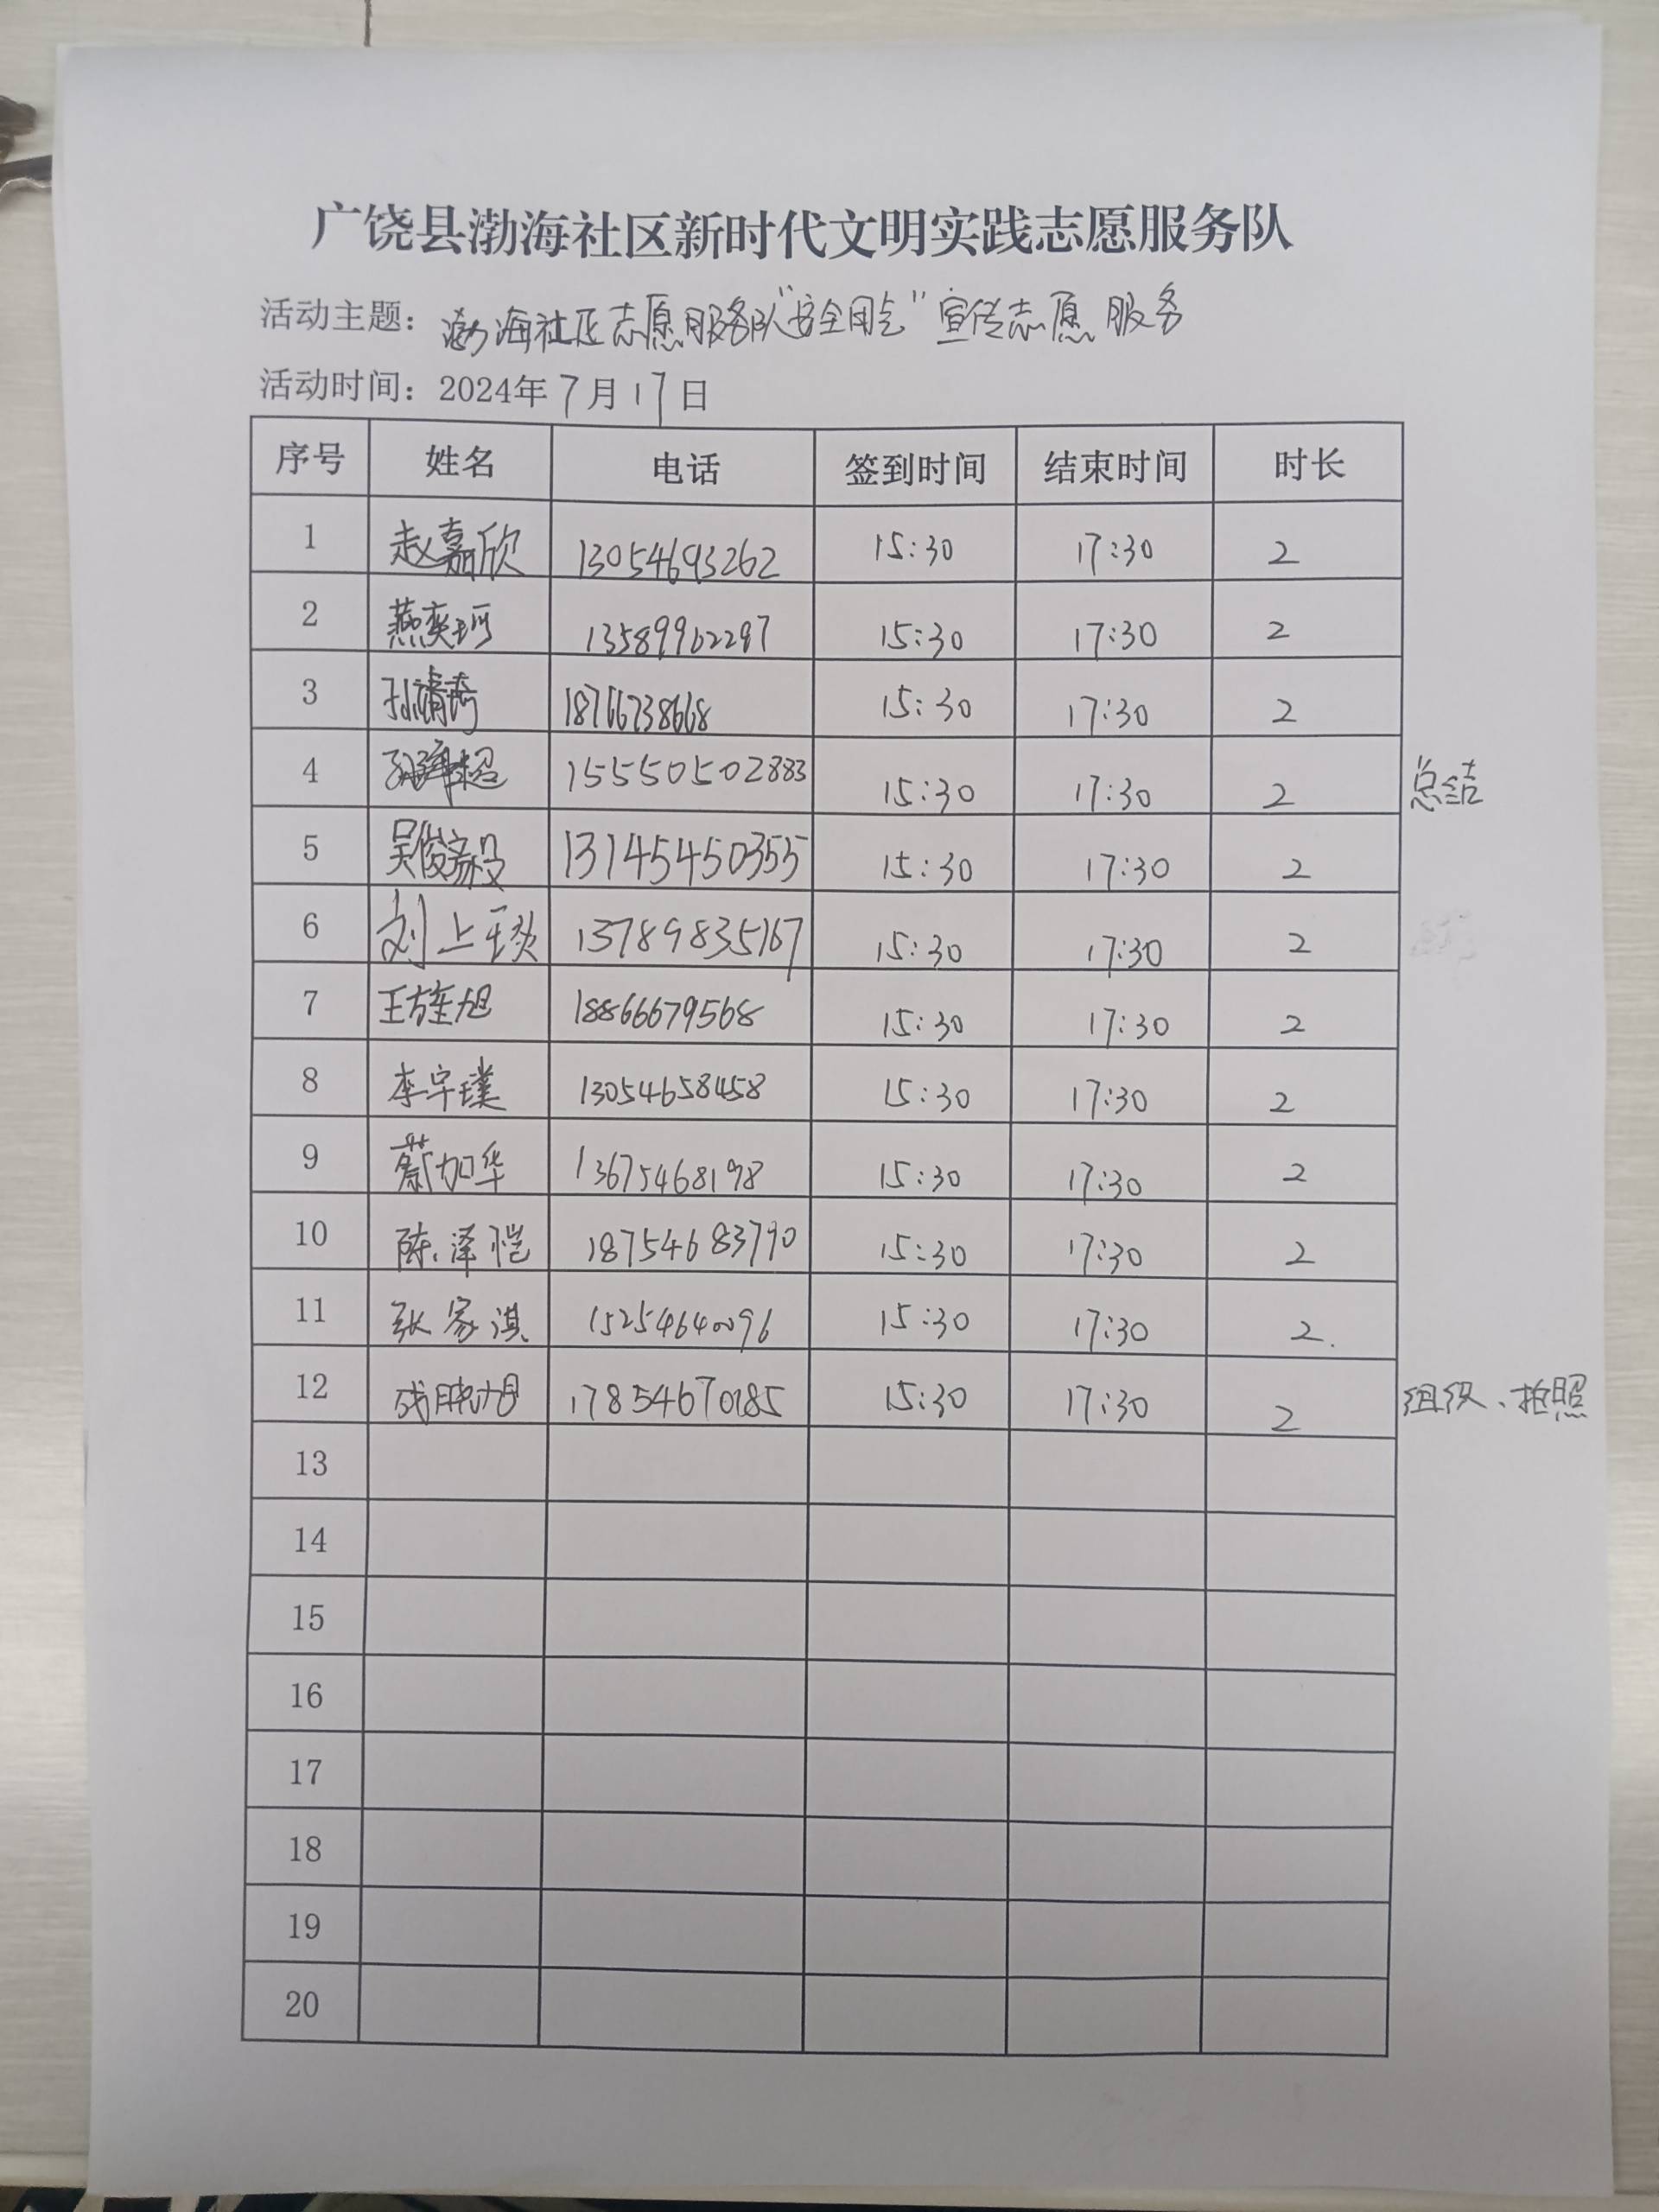 广饶县渤海社区新时代文明实践志愿服务队
活动主题：渤海社区志愿服务队“安全用气”宣传志愿服务
活动时间：2024年7月17日
序号 姓名 电话 签到时间 结束时间 时长
1 赵嘉欣 13054693262 15:30 17:30 2
2 燕奕珂 13589962297 15:30 17:30 2
3 孙婧琦 18766738668 15:30 17:30 2
4 15550502883 15:30 17:30 2 总结
5 吴俊毅 13145450355 15:30 17:30 2
6 刘上琰 13789835167 15:30 17:30 2
7 王旌旭 18866679568 15:30 17:30 2
8 李宇璞 13054658458 15:30 17:30 2
9 蔡加华 13675468198 15:30 17:30 2
10 陈泽恺 18754683790 15:30 17:30 2
11 张家淇 15254640096 15:30 17:30 2
12 17854670185 15:30 17:30 2 组织、拍照
13
14
15
16
17
18
19
20